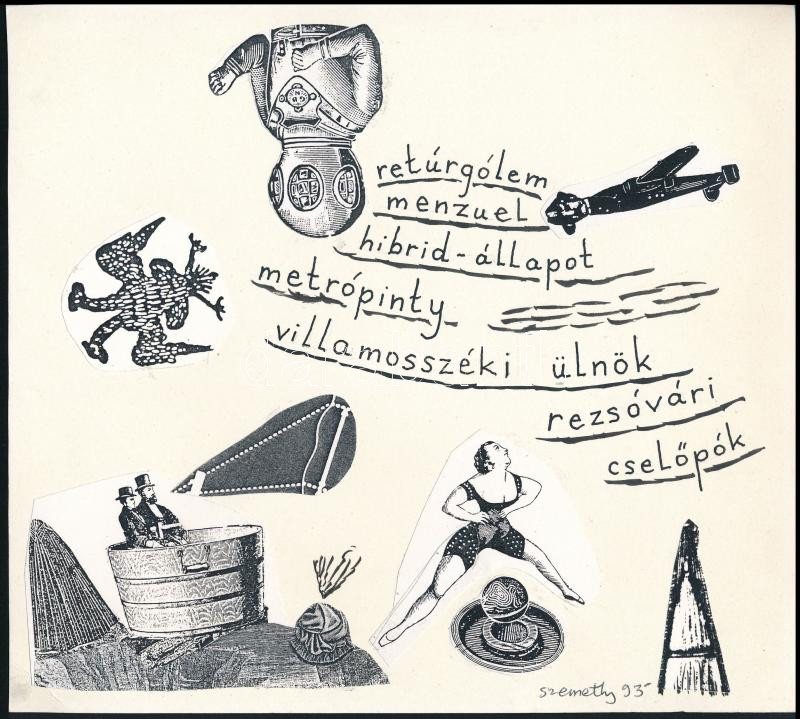 retúrgólem
menzuel
hibrid-állapot
metrópinty
villamosszéki ülnök
rezsóvári
cselőpók
szemethy 93